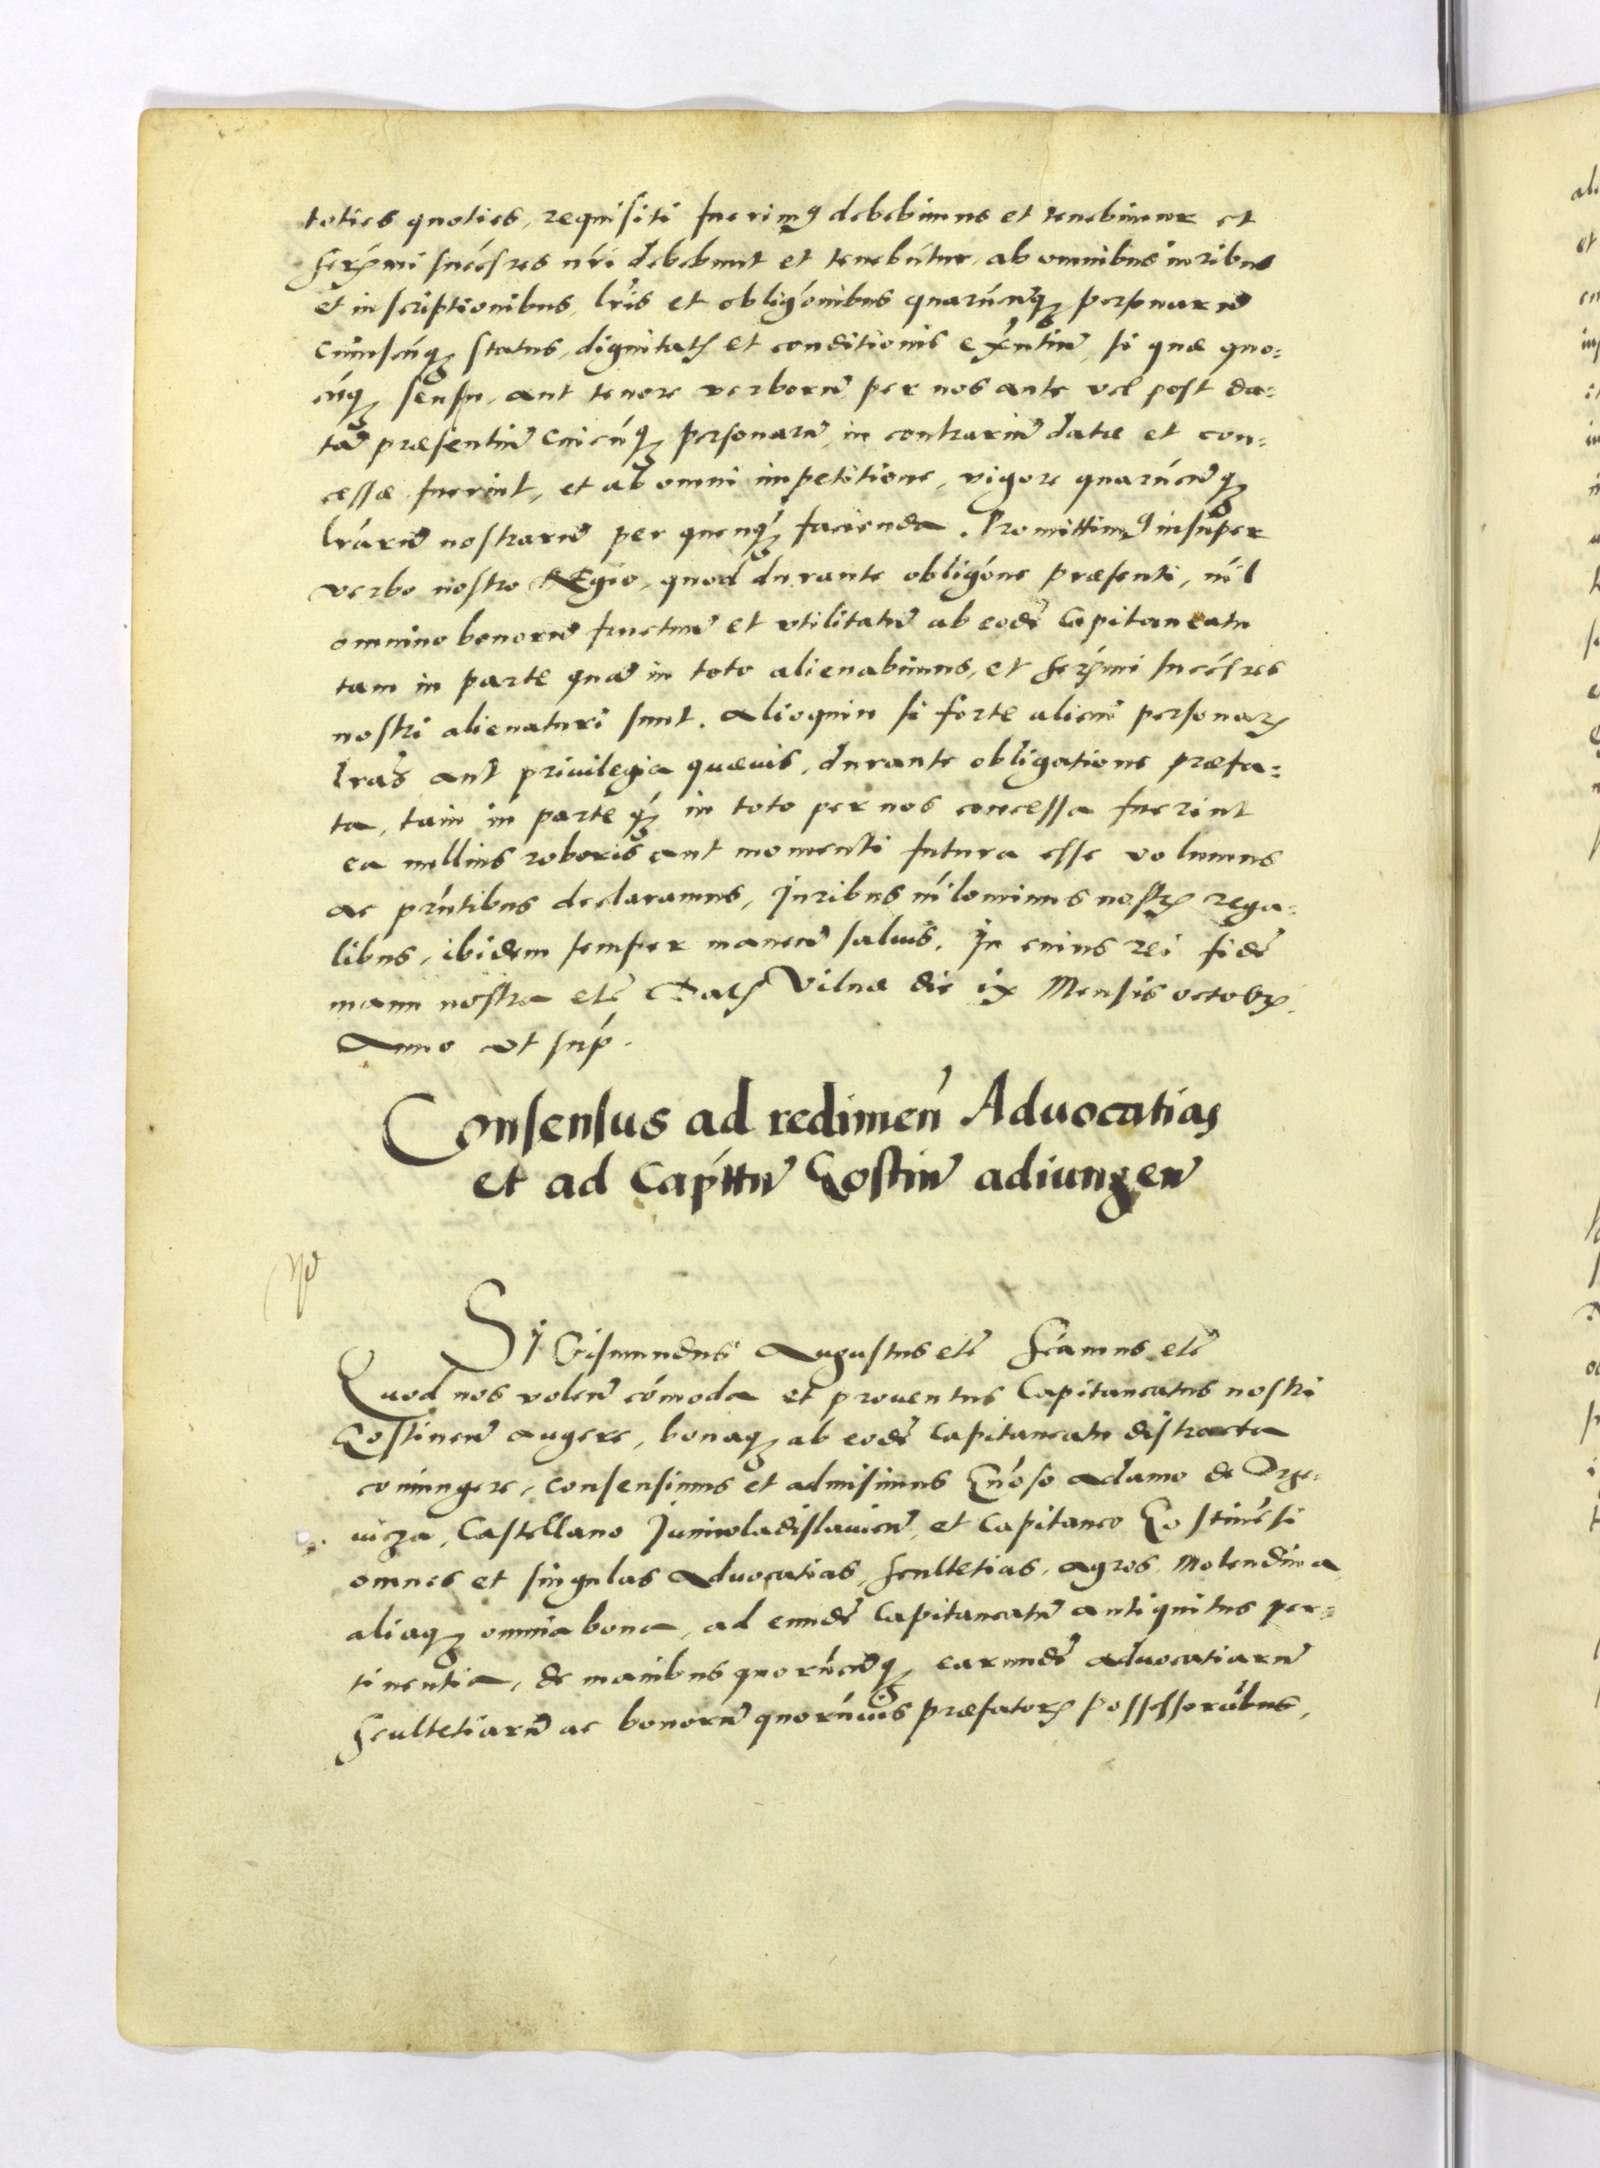 toties quoties, requisiti fuerimꝰ debebimus et tenebimur et
serẽmi succẽsres nr̃i debebunt et tenebũtur, ab omnibus iuribus
et inscriptionibus, lr̃is et obligõnibus quarũcũqꝫ personarũ
cuiuscũqꝫ status, dignitatꝭ et conditionis exñtiũ, si quæ quo=
cũqꝫ sensu, aut tenore verborũ per nos ante vel post da=
tã præsentiũ cuicũqꝫ personarũ, in contrariũ datæ et con=
cessæ fuerint, et ab omni impetitione, vigore quarũcũqꝫ
lr̃arũ nostrarũ per quenqꝫ facienda. Promittimꝰ insuper
verbo nostro Regio, quod durante obligõne præsenti, nil
omnino bonorũ fructuũ et vtilitatũ ab eodẽ Capitaneatu
tam in parte quã in toto alienabimus, et serẽmi succẽsres
nostri alienaturi sunt. Alioquin si forte alicui personarꝫ
lr̃as aut privilegia quævis, durante obligatione præfa=
ta, tam in parte qꝫ in toto per nos concessa fuerint
ea nullius roboris aut momenti futura esse volumus
ac pñtibus declaramus, Juribus nilominus nostrꝭ rega=
libus, ibidem semper manen̄ salvis. In cuius rei fidẽ
manu nostra etc̃ Datꝭ Vilnæ die ix Mensis octobrꝭ.
Anno vt sup̃.
Consensus ad redimeñ Advocatias
et ad Cap̃ttũ Gostiñ adiungeñ
Sigismundus Augustus etc̃ sciamus etc̃
Quod nos voleñ cõmoda et proventus Capitaneatus nostri
Gostineñ augere, bonaqꝫ ab eodẽ Capitaneatu distracta
coniungere, consensimus et admisimus Gñoso Adamo de Drze=
vicza, Castellano Juniwladislavieñ, et Capitaneo Gostinẽsi
omnes et singulas Advocatias, scultetias, agros, Molendina
aliaqꝫ omnia bona, ad eundẽ Capitaneatũ antiquitus per=
tinentia, de manibus quorũcũqꝫ earundẽ advocatiarũ
scultetiarũ ac bonorũ quorũvis præfatorꝫ possessoribus,